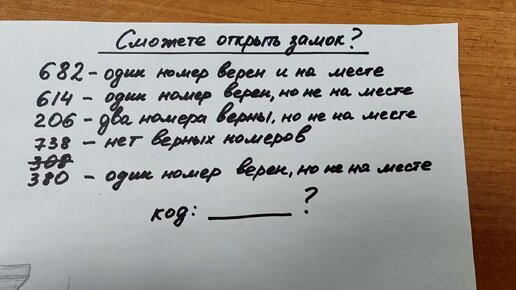 Сможете открыть замок?
682 - один номер верен и на месте
614 - один номер верен, но не на месте
206 - два номера верны, но не на месте
738 - нет верных номеров
308
380 - один номер верен, но не на месте
код: ________ ?